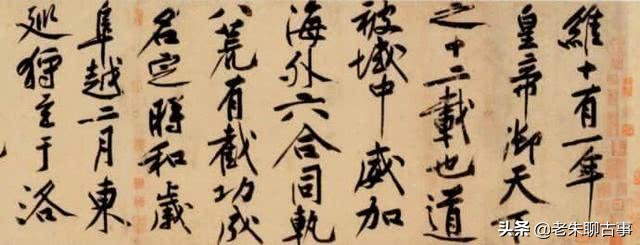 維十有一年
皇帝御天
之十二載也道
被域中威加
海外六合同軌
八荒有截功成
名定時和歲
阜越二月東
巡狩至于洛
头条 @老朱聊古事